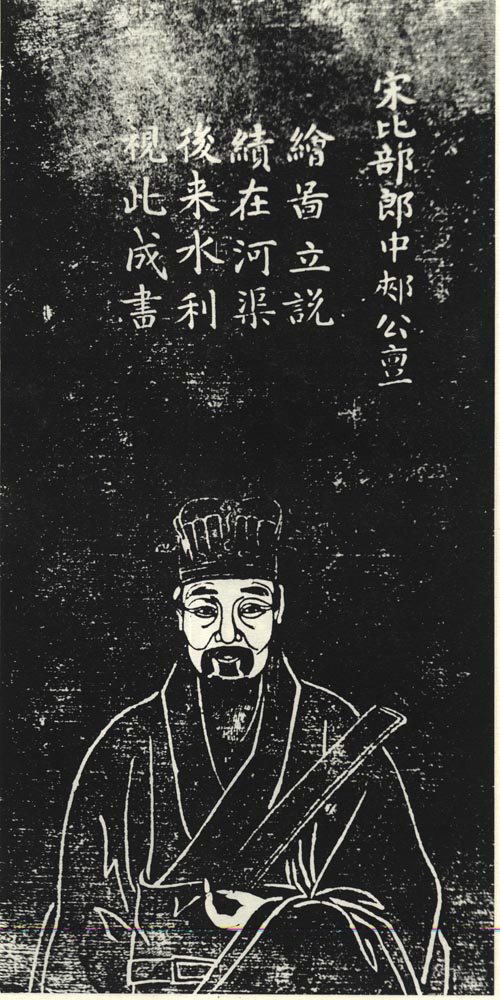 宋比部郎中郟公亶
繪啚立説
績在河渠
後来水利
視此成畫